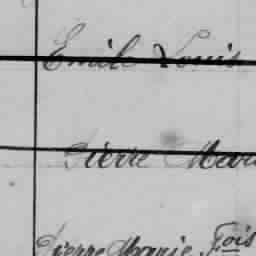 Emile Louis
Pierre Marie
Pierre Marie Fois